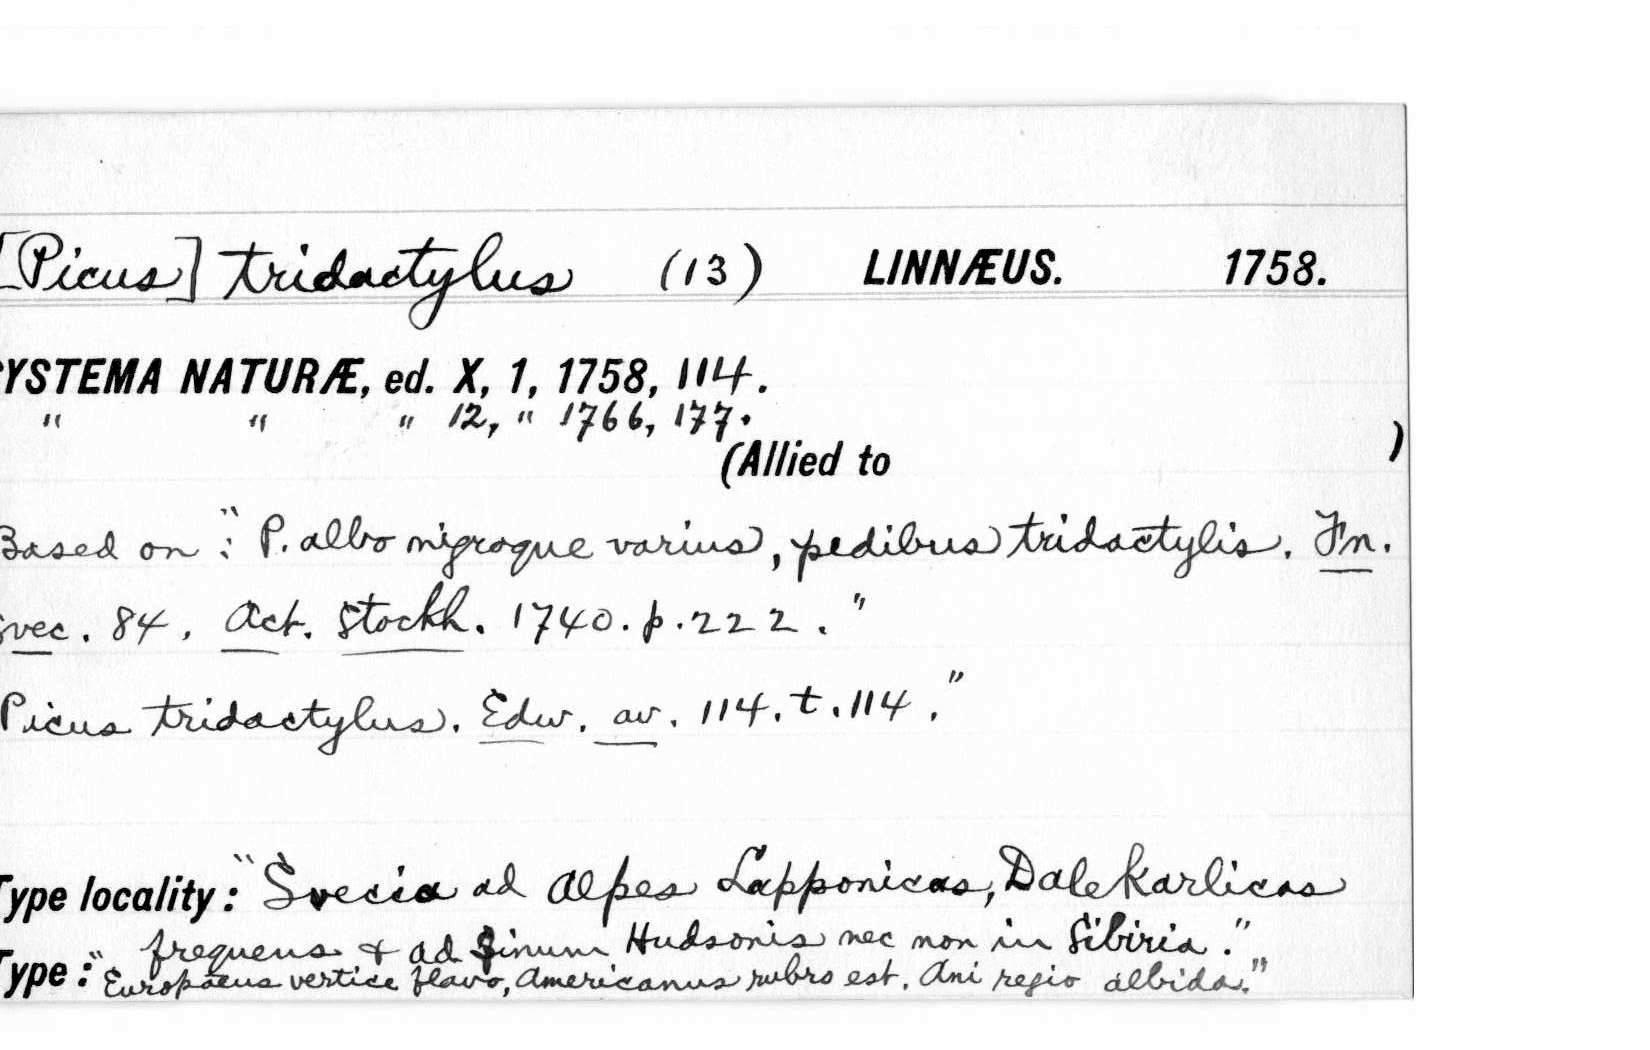 [Picus] tridactylus (13) LINNÆUS. 1758.
SYSTEMA NATURÆ, ed. X, 1, 1758, 114.
" " " 12, " 1766, 177.
(Allied to )
Based on : "P. albo nigroque varius, pedibus tridactylis. Fn.
svec. 84, Act. Stockh. 1740. p. 222."
Picus tridactylus. Edw. av. 114. t. 114."
Type locality: "Svecia ad Alpes Lapponicas, Dalekarlicas
frequens & ad Sinum Hudsonis nec non in Sibiria."
Type: "Europaeus vertice flavo, Americanus rubro est. Ani regio albida."